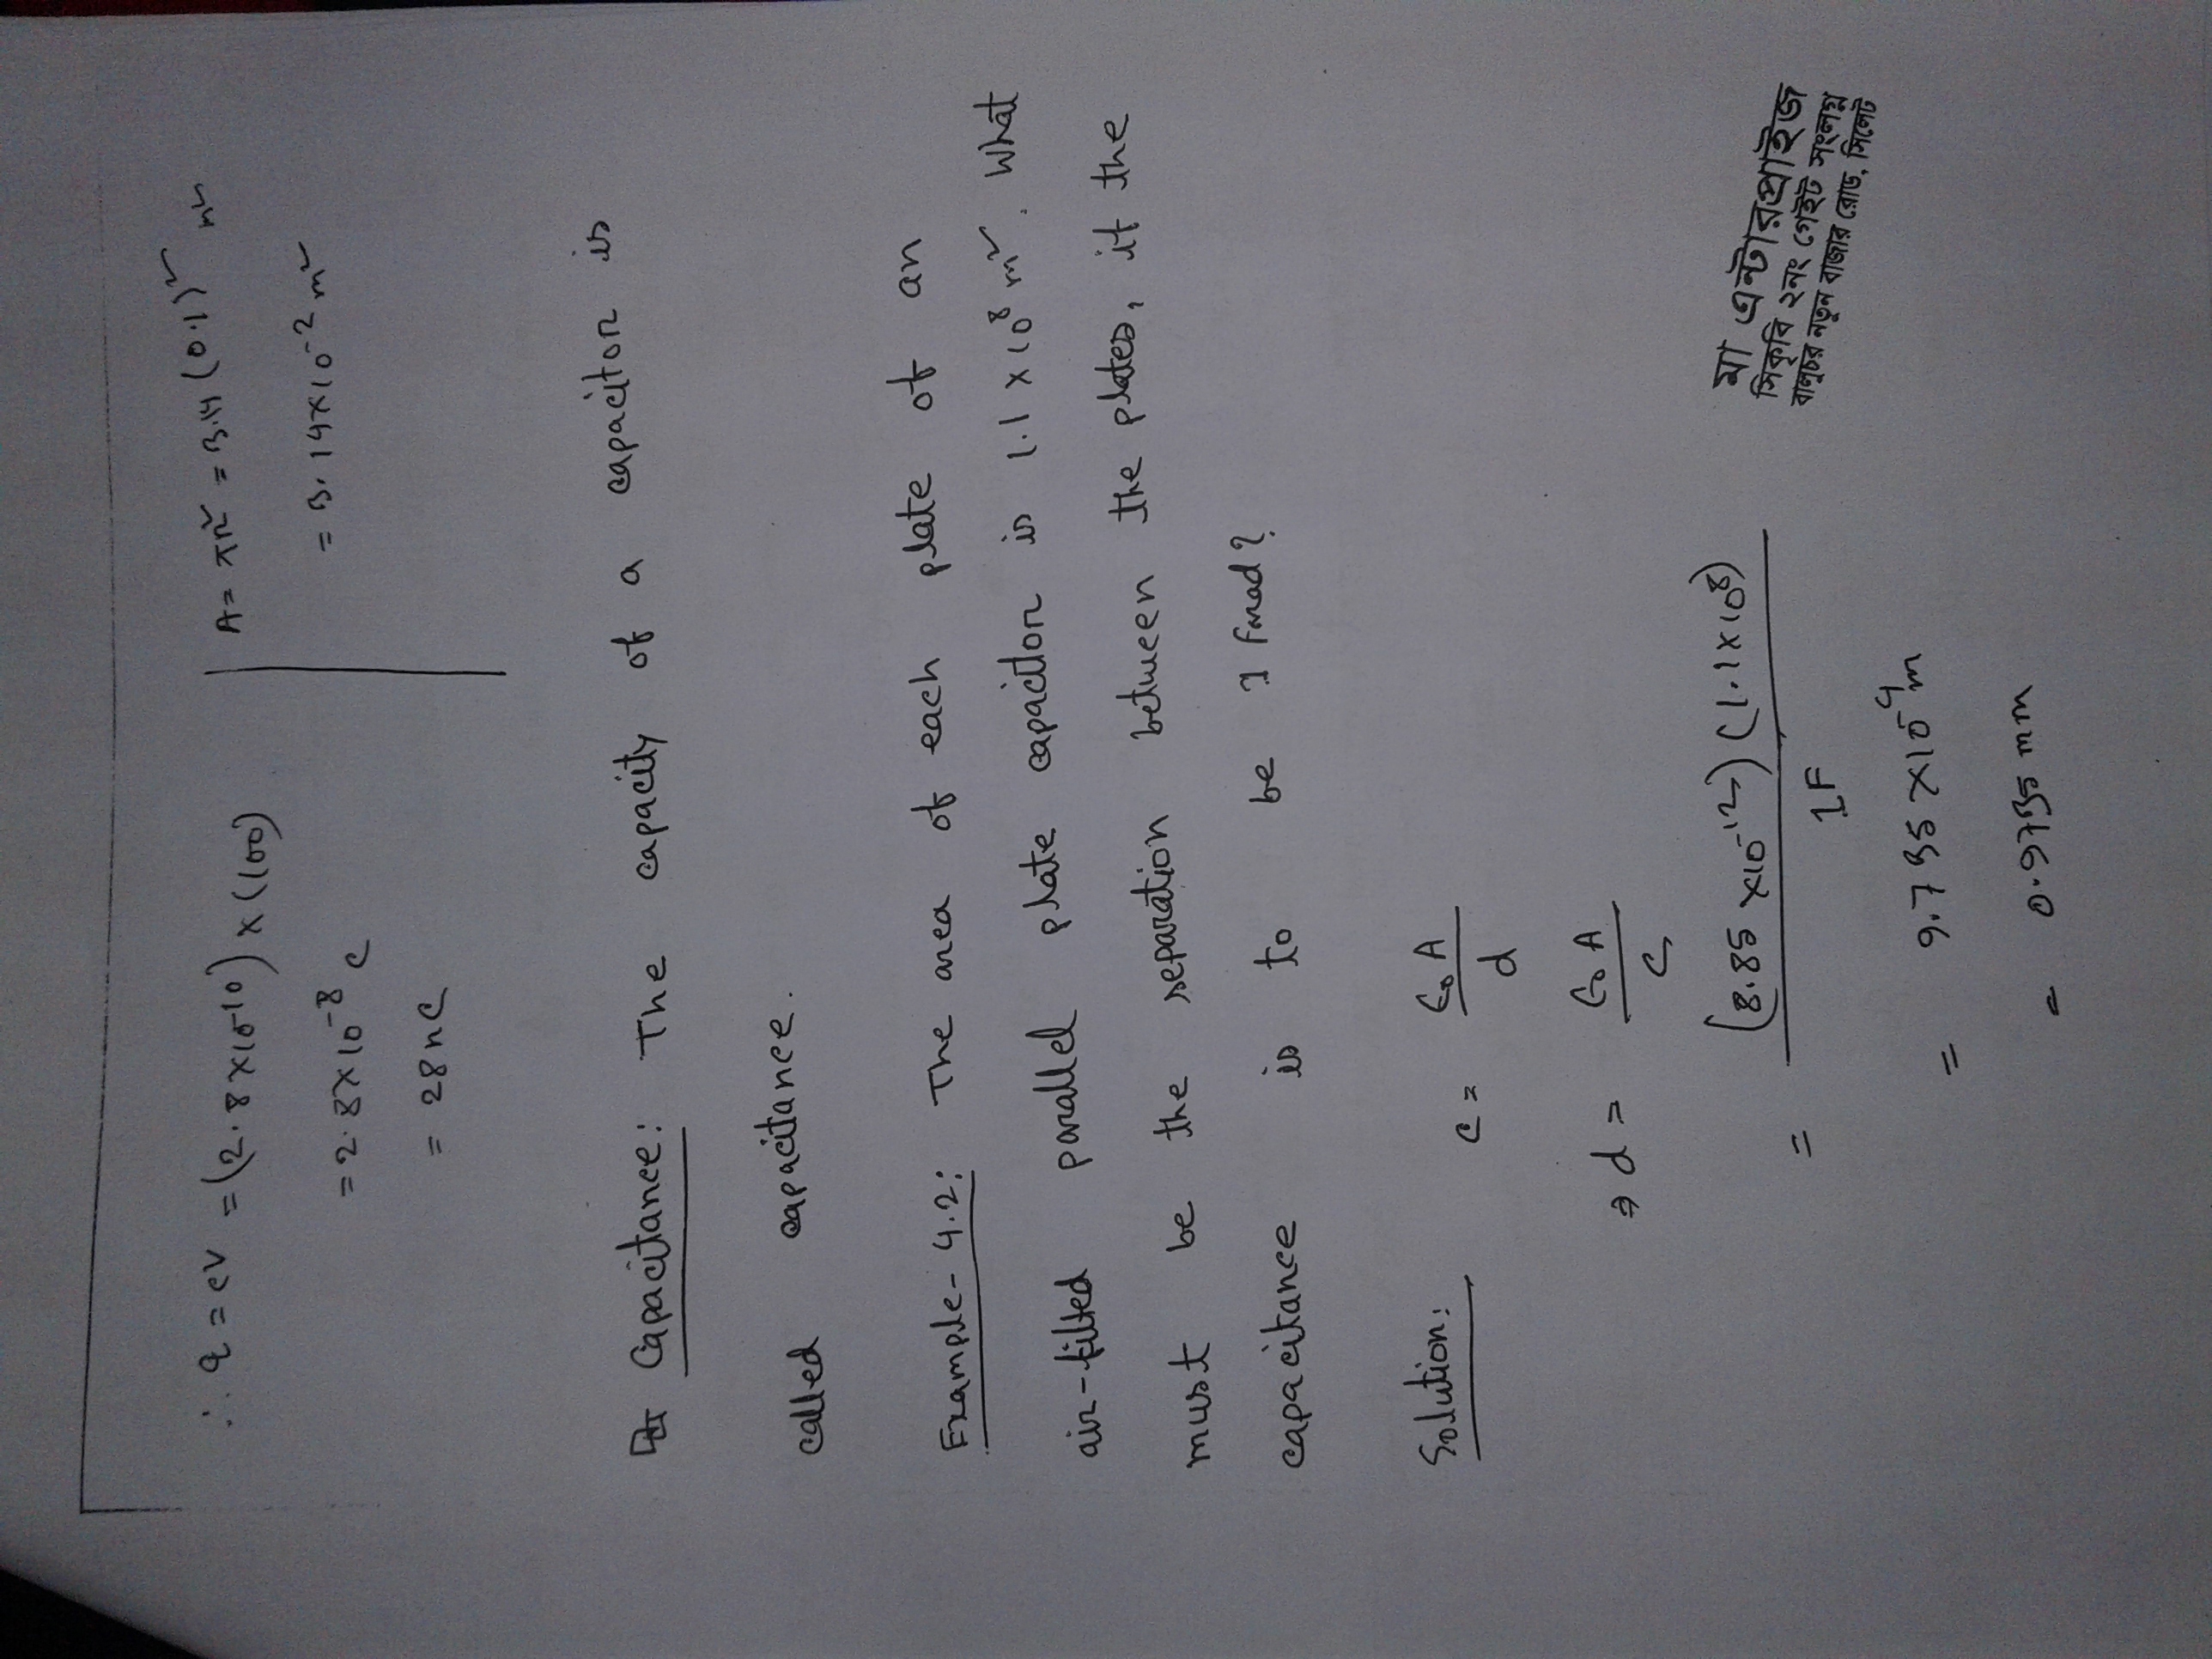 ∴ q = cV = (2.8×10^-10) × (100)
= 2.8×10^-8 C
= 28nC
A = πr² = 3.14 (0.1)² m²
= 3.14×10^-2 m²
Capacitance: The capacity of a capacitor is
called capacitance.
Example-4.2: The area of each plate of an
air-filled parallel plate capacitor is 1.1×10^8 m². What
must be the separation between the plates, if the
capacitance is to be 1 Farad?
Solution: C = ε₀A / d
⇒ d = ε₀A / C
= (8.85×10^-12)(1.1×10^8) / 1F
= 9.735×10^-4 m
= 0.9735 mm
মা এন্টারপ্রাইজ
সিকৃবি ২নং গেইট সংলগ্ন
বালুচর নতুন বাজার রোড, সিলেট